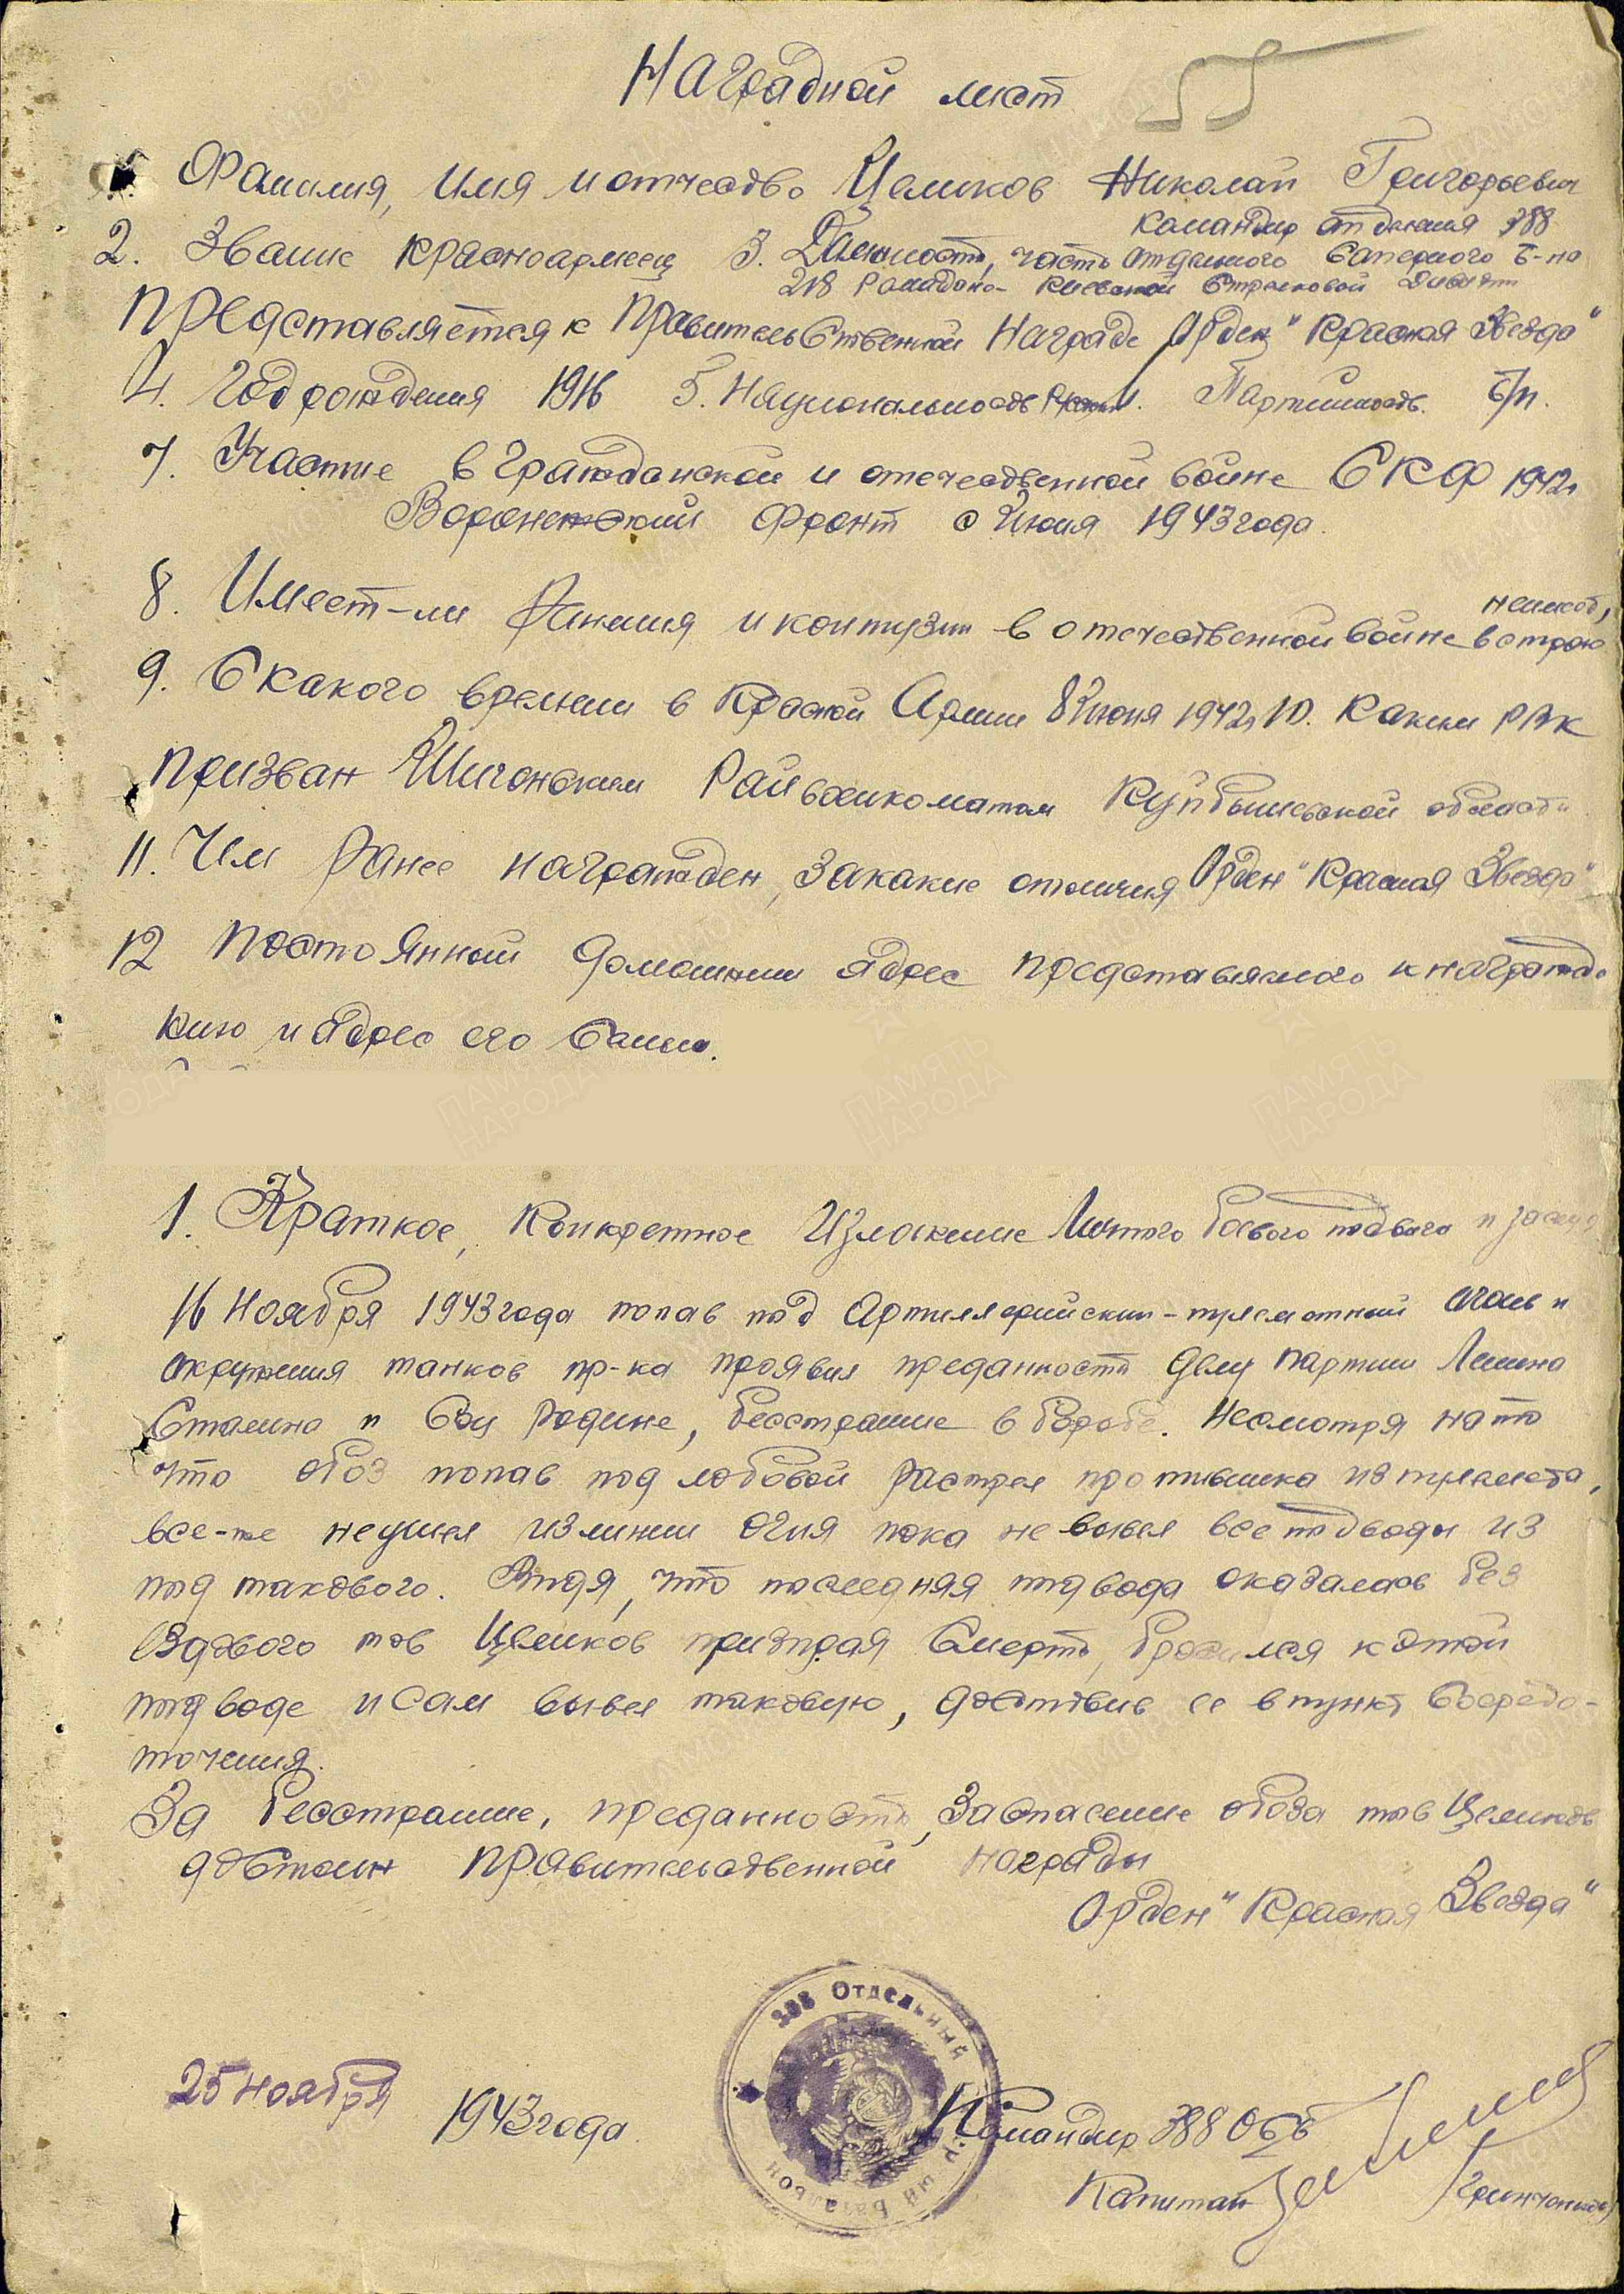 Наградной лист
1. Фамилия, имя и отчество Целиков Николай Григорьевич
2. Звание красноармеец 3. Должность, часть Командир отделения 388
отдельного Саперного б-на
218 Ромодано-Киевской Стрелковой Дивизии
Представляется к Правительственной Награде Орден "Красная Звезда"
4. Год рождения 1916 5. Национальность Партийность б/п.
7. Участие в Гражданской и отечественной войне СКФ 1942г
Воронежский фронт с Июля 1943 года.
8. Имеет-ли Ранения и контузии в отечественной войне неимеет, в строю
9. С какого времени в Красной Армии 8 Июня 1942г 10. Каким РВК
призван Шигонским Райвоенкоматом Куйбышевской области
11. Чем ранее награжден, за какие отличия Орден "Красная Звезда"
12 Постоянный домашний адрес представляемого к награжде
нию и адрес его Семьи.
1. Краткое, Конкретное Изложение Личного боевого подвига и заслуг
16 Ноября 1943 года попав под Артиллерийский-пулеметный огонь и
окружения танков пр-ка проявил преданность делу партии Ленина
Сталина и Соц Родине, бесстрашие в борьбе. Несмотря на то
что обоз попав под лобовой расстрел противника из пулемета,
все-же неушел из линии огня пока не вывел все подводы из
под такового. Видя, что последняя подвода оказалась без
Ездового тов Целиков призирая Смерть, бросился к этой
подводе и Сам вывел таковую, доставив ее в пункт Сосредо-
точения.
За бесстрашие, преданность, За Спасение обоза тов Целиков
достоин правительственной награды
Орден "Красная Звезда"
388 Отдельный
Батальон
25 Ноября 1943 года.
Командир 388 ОСБ
Капитан